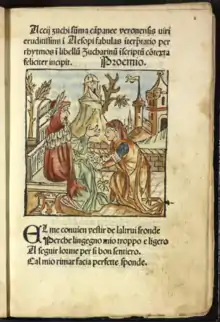 Accij zuchi sūma cāpanee veronensis viri
eruditissimi i Aesopi fabulas iterpratio per
rhytmos i libellū Zucharinū iscriptū cōtexta
feliciter incipit. Proemio.
EL me convien vestir de laltrui fronde
Perche lingegno mio troppo e ligero
Al seguir lorme per si bon sentiero.
Cal mio rimar facia perfette sponde.